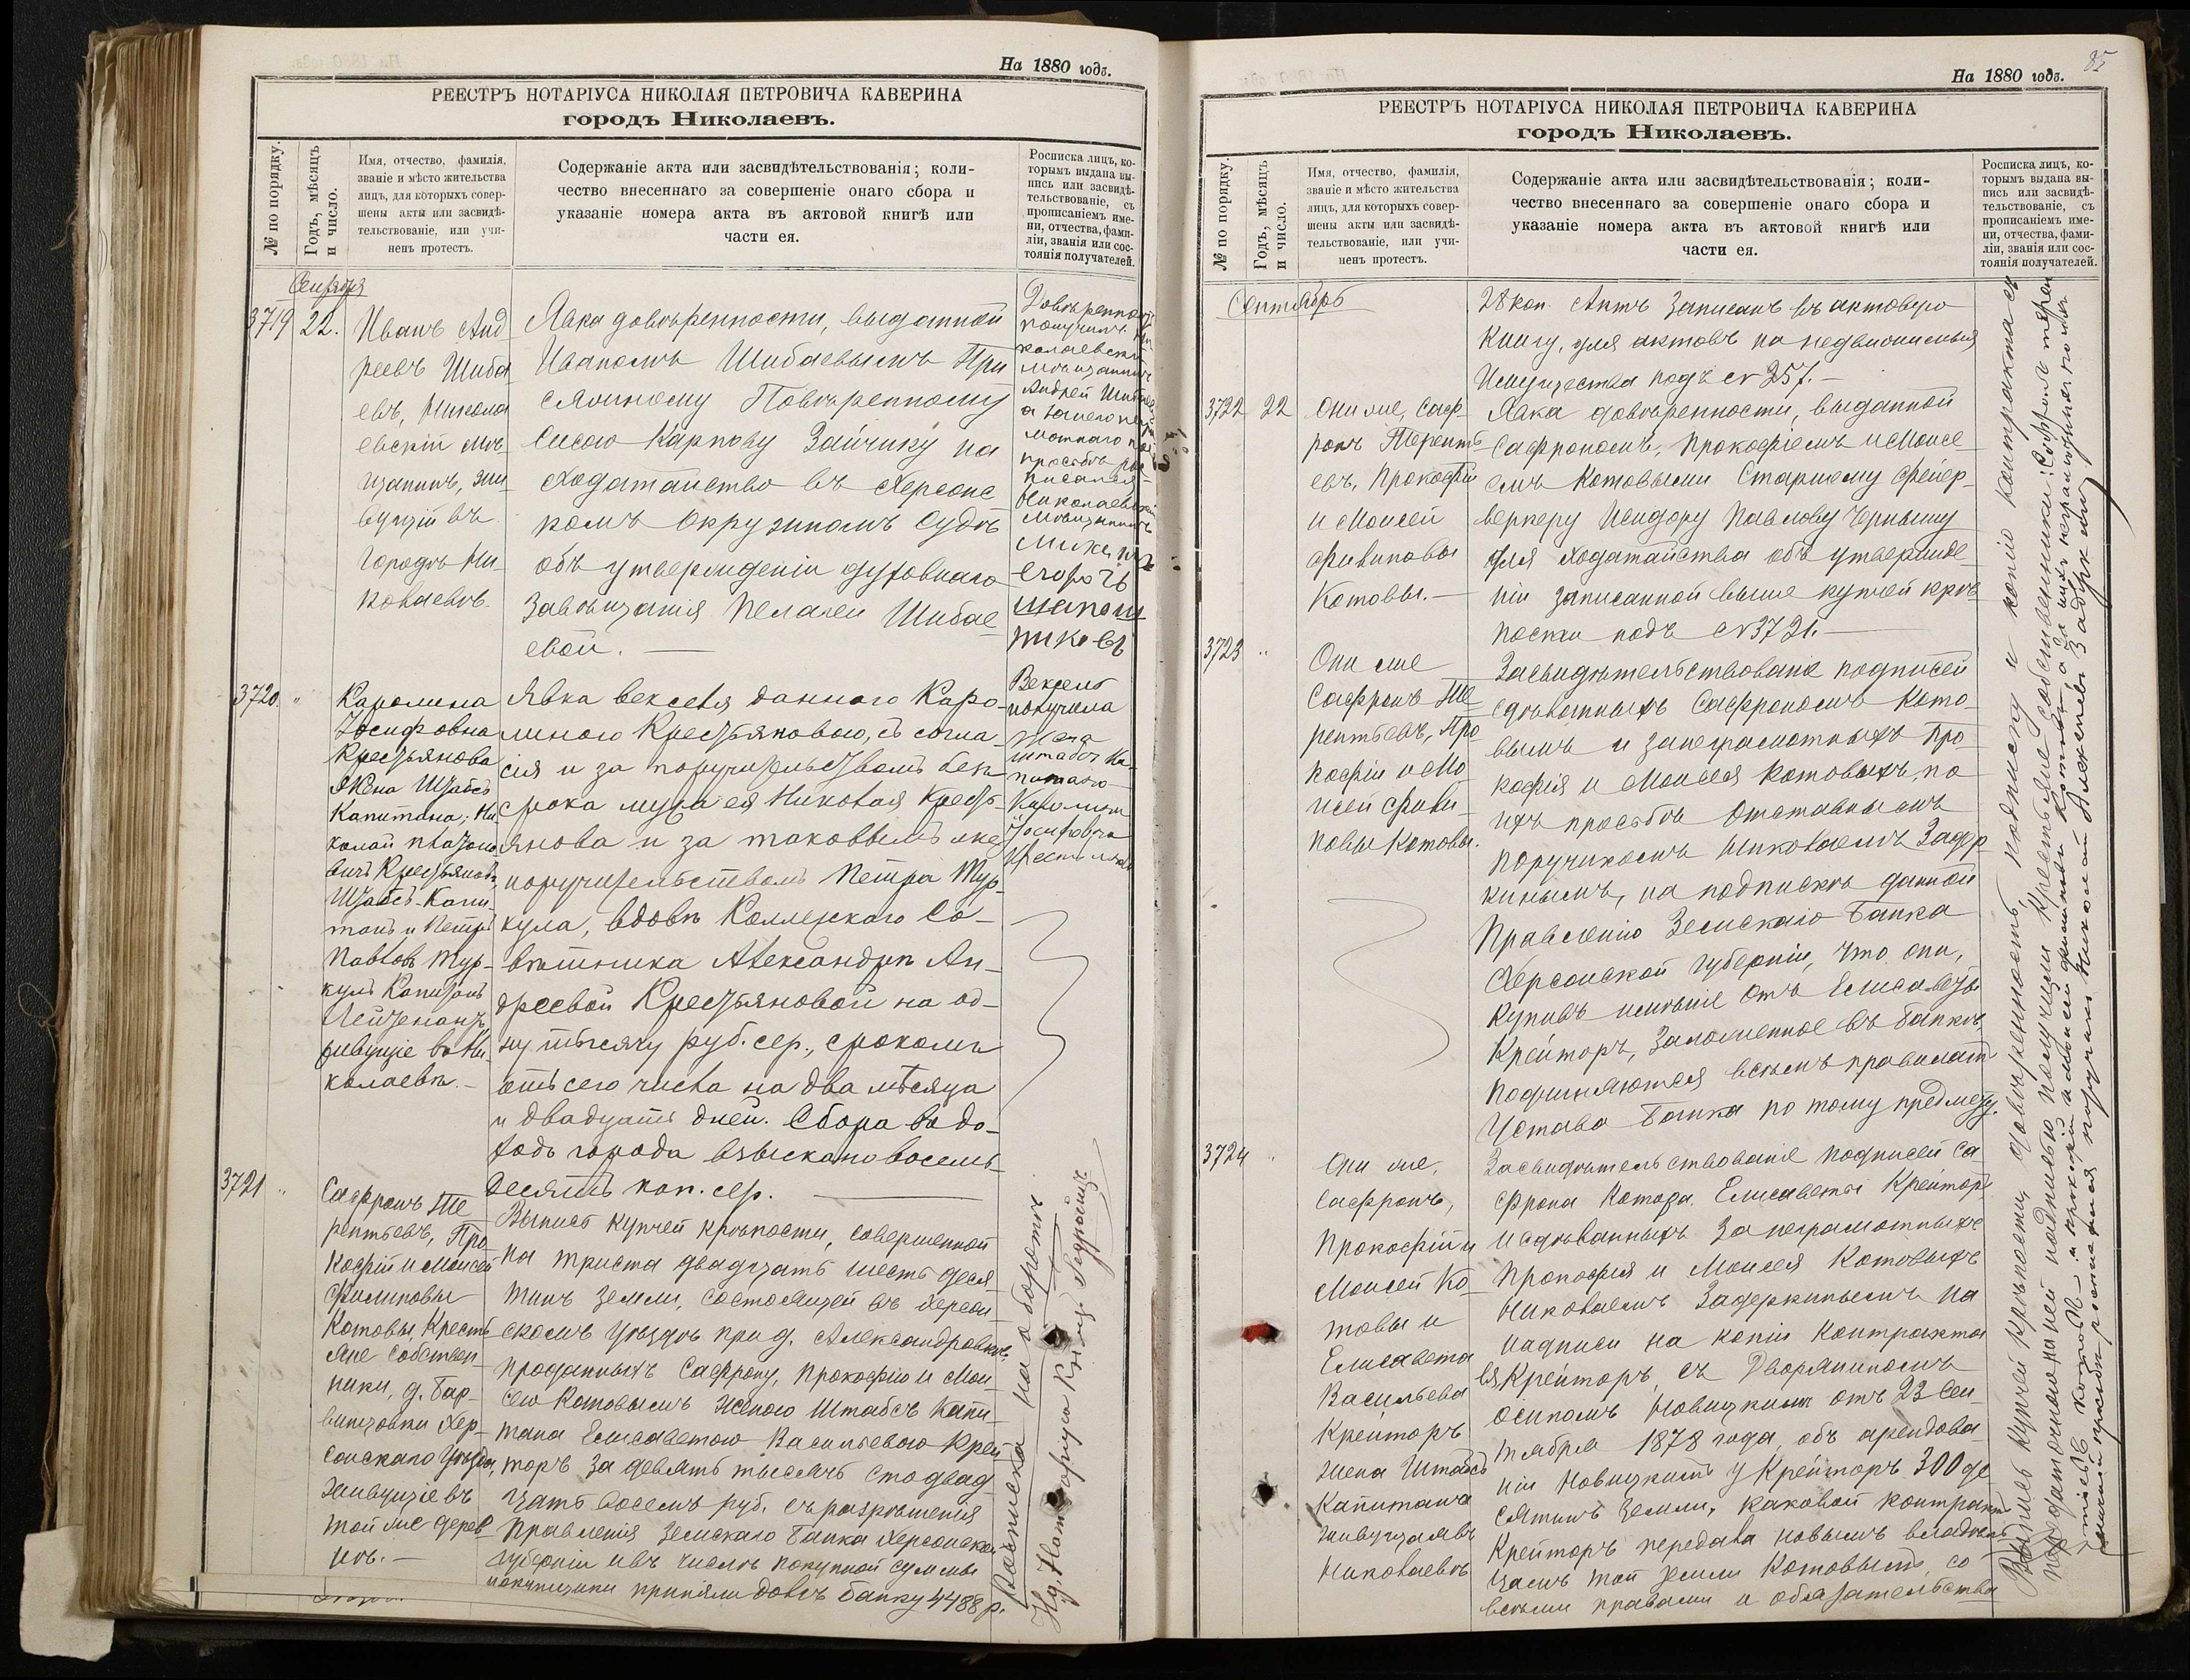 На 1880 годъ.
РЕЕСТРЪ НОТАРІУСА НИКОЛАЯ ПЕТРОВИЧА КАВЕРИНА
городъ Николаевъ.
№ по порядку.
Годъ, мѣсяцъ
и число.
Имя, отчество, фамилія,
званіе и мѣсто жительства
лицъ, для которыхъ совер-
шены акты или засвидѣ-
тельствованіе, или учи-
ненъ протестъ.
Содержаніе акта или засвидѣтельствованія; коли-
чество внесеннаго за совершеніе онаго сбора и
указаніе номера акта въ актовой книгѣ или
части ея.
Росписка лицъ, ко-
торымъ выдана вы-
пись или засвидѣ-
тельствованіе, съ
прописаніемъ име-
ни, отчества, фами-
ліи, званія или сос-
тоянія получателей.
Сентября
3719 22.
Иванъ Анд
реевъ Шиба
евъ, Никола
евскій мѣ
щанинъ, жи
вущій въ
городѣ Ни-
колаевѣ.
Явка довѣренности, выданной
Иваномъ Шибаевымъ При
сяжному Повѣренному
Карпову Зайчику на
ходатайство въ Херсонс
комъ Окружномъ Судѣ
объ утвержденіи духовнаго
завѣщанія Пелагеи Шибае
евой.
Довѣренность
получилъ Ни
колаевскій
мѣщанинъ
Андрей Шибаев
а за него негра
мотнаго по
просьбѣ рос
писался
Николаевскій
мѣщанинъ
Егоръ
шапош
никовъ
3720 "
Каролина
Іосифовна
Крестьянова
жена Штабсъ
Капитана; Ни
колай Платоно
вичъ Крестьяновъ,
Штабсъ-Капи-
танъ и Петръ
Павловъ Тур-
кулъ Капитанъ
Лейтенантъ,
живущіе въ Ни-
колаевѣ.
Явка векселя даннаго Каро-
линою Крестьяновою, съ согла-
сія и за поручительствомъ безъ
срока мужа ея Николая Кресть-
янова и за таковымъ же
поручительствомъ Петра Тур-
кула, вдовѣ Коллежскаго Со-
вѣтника Александрѣ Ан-
дреевой Крестьяновой на од-
ну тысячу руб. сер., срокомъ
отъ сего числа на два мѣсяца
и двадцать дней. Сбора въ до-
ходъ города взыскано восемь-
десятъ коп. сер.
Вексель
получила
Жена
штабсъ Ка-
питана
Каролина
Іосифовна
Крестьянова
3721 "
Сафронъ Те
рентьевъ, Про
кофій и Моисей
Филиповы
Котовы, Кресть
яне собствен
ники, д. Бар-
виновки Хер-
сонскаго Уѣзда,
живущіе въ
той же дерев
нѣ.
Выпись купчей крѣпости, совершенной
на триста двадцать шесть деся
тинъ земли, состоящей въ Херсон
скомъ Уѣздѣ при д. Александровкѣ,
проданныхъ Сафрону, Прокофію и Мои-
сею Котовымъ женою Штабсъ Капи-
тана Елисаветою Васильевою Крей
торъ за девять тысячъ стодвад
цать восемь руб. съ разрѣшенія
Правленія Земскаго Банка Херсонской
губерніи и въ число покупной суммы
покупщики приняли долгъ банку 4488 р.
Росписка на оборотѣ
На 1880 годъ.
85
РЕЕСТРЪ НОТАРІУСА НИКОЛАЯ ПЕТРОВИЧА КАВЕРИНА
городъ Николаевъ.
№ по порядку.
Годъ, мѣсяцъ
и число.
Имя, отчество, фамилія,
званіе и мѣсто жительства
лицъ, для которыхъ совер-
шены акты или засвидѣ-
тельствованіе, или учи-
ненъ протестъ.
Содержаніе акта или засвидѣтельствованія; коли-
чество внесеннаго за совершеніе онаго сбора и
указаніе номера акта въ актовой книгѣ или
части ея.
Росписка лицъ, ко-
торымъ выдана вы-
пись или засвидѣ-
тельствованіе, съ
прописаніемъ име-
ни, отчества, фами-
ліи, званія или сос-
тоянія получателей.
Сентябрь
28 коп. Актъ записанъ въ актовую
книгу, для актовъ на недвижимыя
Имущества подъ № 257.
3722 22
Они же, Саф
ронъ Теренть
евъ, Прокофій
и Моисей
Филиповы
Котовы.
Явка довѣренности, выданной
Сафрономъ, Прокофіемъ и Моисе
емъ Котовыми Старшему фейер-
веркеру Исидору Павлову Чернышу
для ходатайства объ утвержде
ніи записанной выше купчей крѣ
пости подъ № 3721.
3723 "
Они же
Сафронъ Те
рентьевъ, Про
кофій и Мо
исей Фили
повы Котовы.
Засвидѣтельствованіе подписей
сдѣланныхъ Сафрономъ Кото-
вымъ и за неграмотныхъ Про
кофія и Моисея Котовыхъ, по
ихъ просьбѣ Отставнымъ
Поручикомъ Николаемъ Задер
кинымъ, на подпискѣ данной
Правленію Земскаго Банка
Херсонской губерніи, что они,
купивъ имѣніе отъ Елисаветы
Крейторъ, заложенное въ банкѣ,
подчиняются всѣмъ правиламъ
Устава Банка по тому предмету.
3724 "
Они же,
Сафронъ,
Прокофій и
Моисей Ко
товы и
Елисавета
Васильева
Крейторъ
жена Штабсъ
Капитана
живущая въ
Николаевѣ
Засвидѣтельствованіе подписей Са
фрона Котова, Елисаветы Крейторъ
и сдѣланныхъ за неграмотныхъ
Прокофія и Моисея Котовыхъ
Николаемъ Задеркинымъ на
надписи на копіи контракта
Крейторъ, съ Дворяниномъ
Осипомъ Новицкимъ отъ 23 Сен
тября 1878 года, объ арендова
ніи Новицкимъ у Крейторъ 300 де
сятинъ земли, каковой контрактъ
Крейторъ передала новымъ владѣль
цамъ той земли Котовымъ, со
всѣми правами и обязательства
Выпись купчей крѣпости, довѣренность, подписку и копію контракта съ
передаточною на ней надписью получили крестьяне собственники: Софронъ терен
тіевъ котовъ и прокофій и Моисей филиповы Котовы а за нихъ неграмотныхъ по ихъ
личной просьбѣ росписался поручикъ Николай Алексѣевъ Задеркинъ